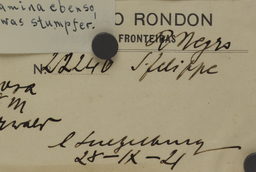 amina ebenso,
was stumpfer.
O RONDON
FRONTEIRAS
R Negro
N. 22240 S. felippe
M
C Luetzelburg
28-IX-21